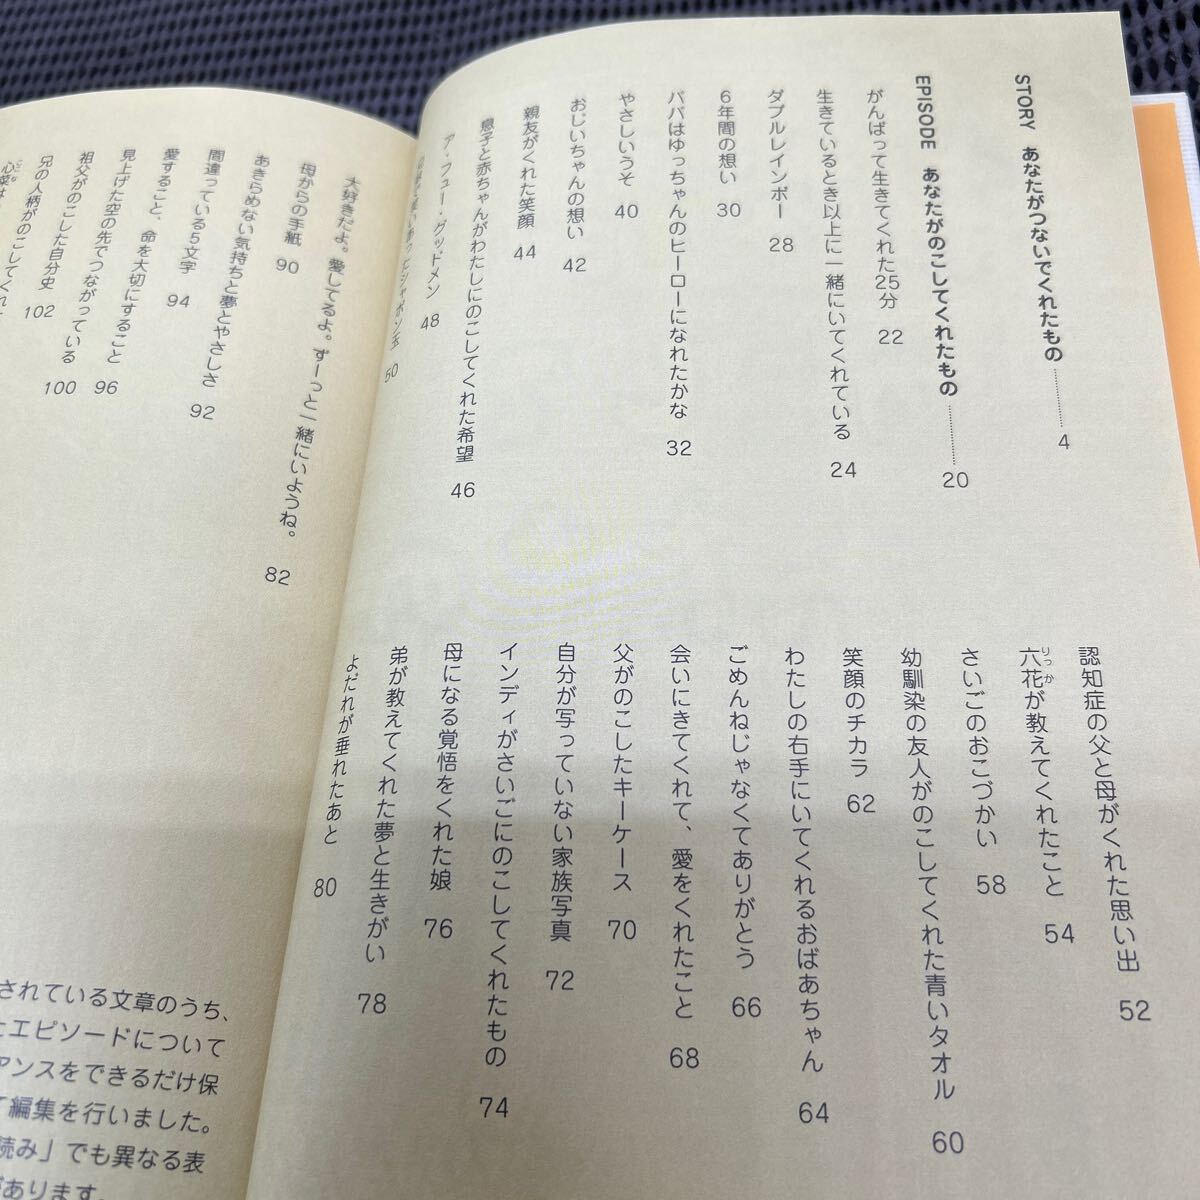 STORY あなたがつないでくれたもの………………4
EPISODE あなたがのこしてくれたもの………………20
がんばって生きてくれた25分 22
生きているとき以上に一緒にいてくれている 24
ダブルレインボー 28
6年間の想い 30
パパはゆっちゃんのヒーローになれたかな 32
やさしいうそ 40
おじいちゃんの想い 42
親友がくれた笑顔 44
息子と赤ちゃんがわたしにのこしてくれた希望 46
ア・フュー・グッドメン 48
シャボン玉 50
認知症の父と母がくれた思い出 52
六花が教えてくれたこと 54
りっか
さいごのおこづかい 58
幼馴染の友人がのこしてくれた青いタオル 60
笑顔のチカラ 62
わたしの右手にいてくれるおばあちゃん 64
ごめんねじゃなくてありがとう 66
会いにきてくれて、愛をくれたこと 68
父がのこしたキーケース 70
自分が写っていない家族写真 72
インディがさいごにのこしてくれたもの 74
母になる覚悟をくれた娘 76
弟が教えてくれた夢と生きがい 78
よだれが垂れたあと 80
大好きだよ。愛してるよ。ずーっと一緒にいようね。 82
母からの手紙 90
あきらめない気持ちと夢とやさしさ 92
間違っている5文字 94
愛すること、命を大切にすること 96
見上げた空の先でつながっている 100
祖父がのこした自分史 102
兄の人柄がのこしてくれ
心菜は
されている文章のうち、
エピソードについて
アンスをできるだけ保
て編集を行いました。
読み」でも異なる表
があります。